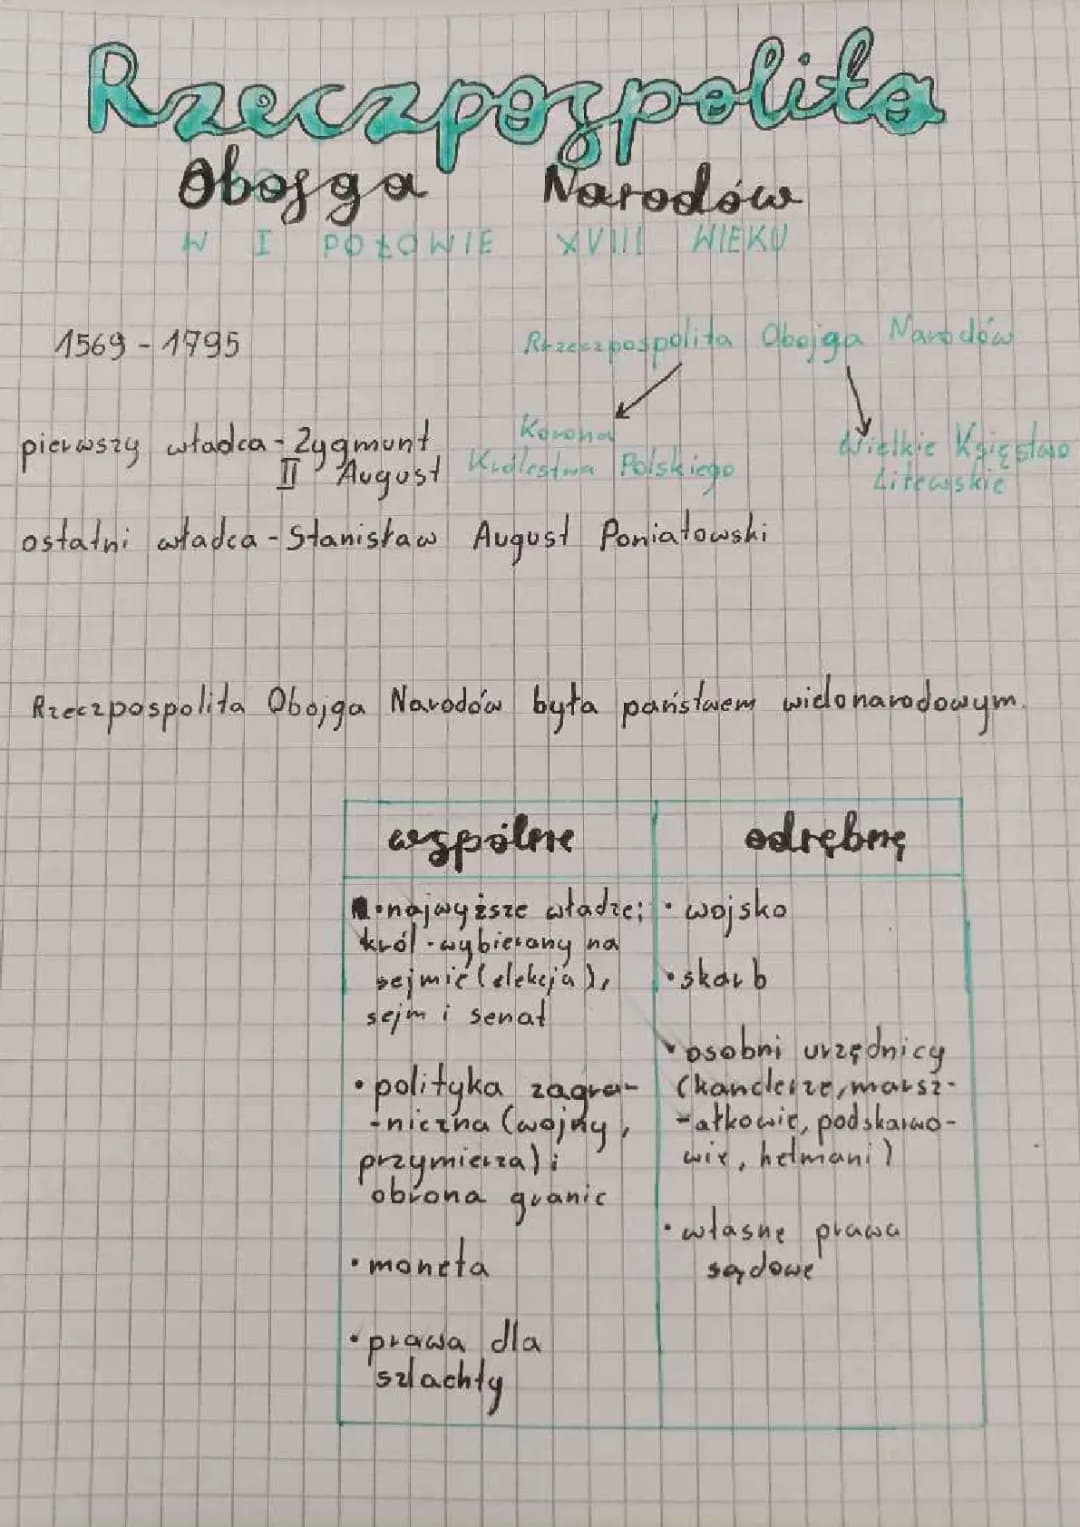 Rzeczpospolita
Obojga Narodów
W I POŁOWIE XVIII WIEKU
1569 - 1795
Rzeczpospolita Obojga Narodów
Korona
Królestwa Polskiego
Wielkie Księstwo
Litewskie
pierwszy władca - Zygmunt
II August
ostatni władca - Stanisław August Poniatowski
Rzeczpospolita Obojga Narodów była państwem wielonarodowym.
wspólne
• najwyższe władze;
król - wybierany na
sejmie (elekcja),
sejm i senat
• polityka zagra-
-niczna (wojny,
przymierza) i
obrona granic
• moneta
• prawa dla
szlachty
odrębne
• wojsko
• skarb
• osobni urzędnicy
(kanclerze, marsz-
-ałkowie, podskarbo-
wie, hetmani)
• własne prawa
sądowe